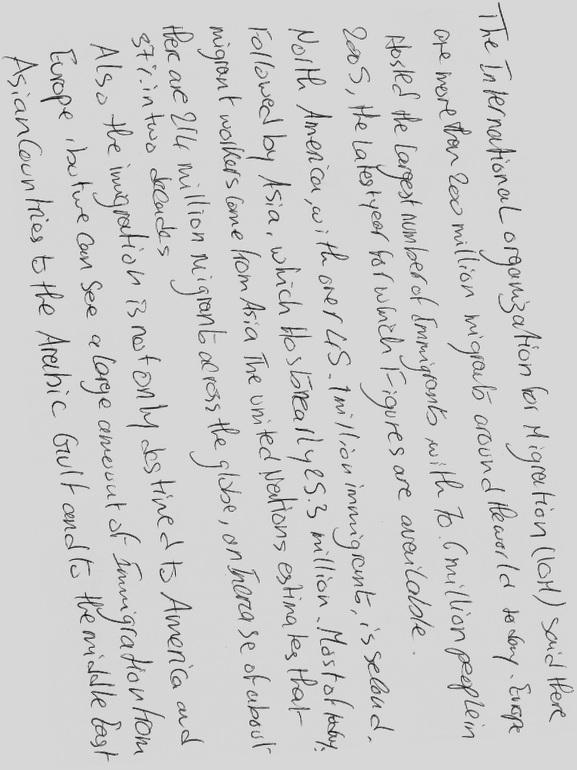 The International organization for Migration (IOM) said there
are more than 200 million migrants around the world today. Europe
Hosted the largest number of Immigrants with 70.6 million people in
2005, the latest year for which Figures are available.
North America, with over 45.1 million immigrants, is second,
Followed by Asia, which Hosts nearly 25.3 million. Most of today's
migrant workers come from Asia The united Nations estimates that
there are 214 million migrants across the globe, an Increase of about
37% in two decades
Also the imigration is not only destined to America and
Europe, but we can see a large amount of Immigration from
Asian Countries to the Arabic Gulf and to the middle East